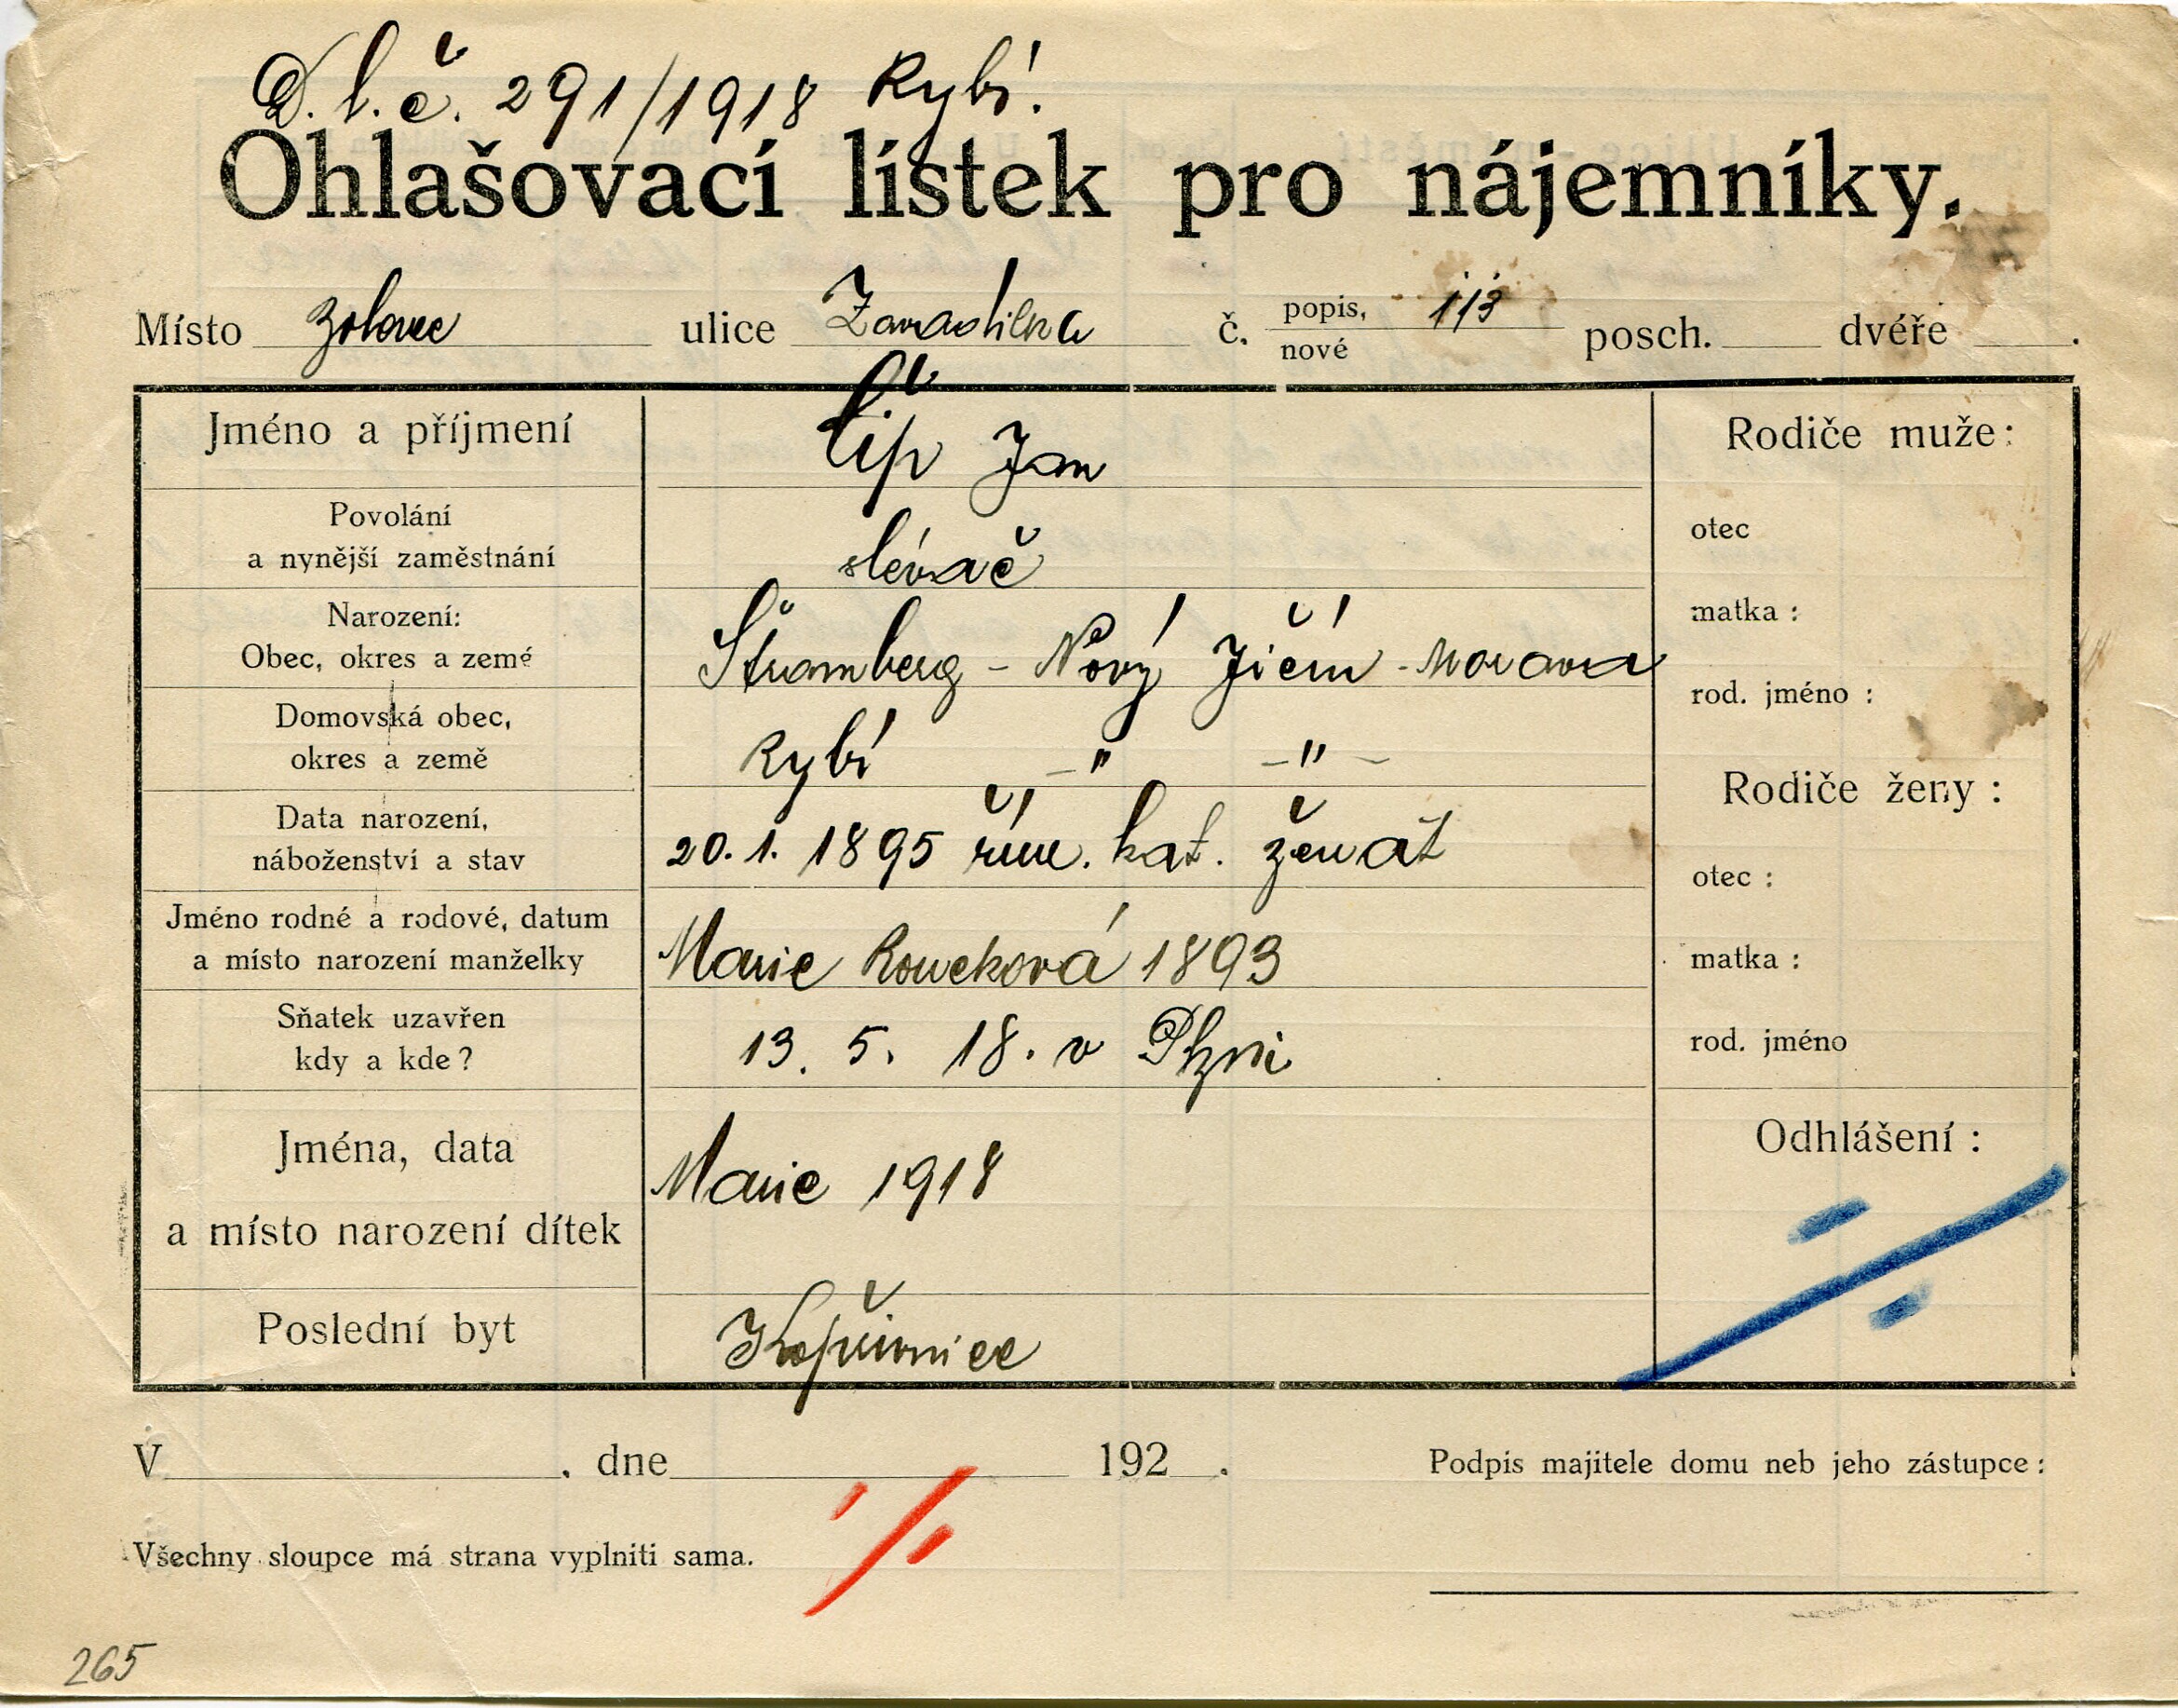 D. l. č. 291/1918 Rybí.
Ohlašovací lístek pro nájemníky.
Místo ulice Zavadilka č. popis, 113 nové posch. dvéře .
Jméno a příjmení Číp Jan
Povolání
a nynější zaměstnání slévač
Narození:
Obec, okres a země Štramberg - Nový Jičín - Morava
Domovská obec,
okres a země Rybí -"- -"-
Data narození,
náboženství a stav 20. 1. 1895 řím. kat. ženat
Jméno rodné a rodové, datum
a místo narození manželky Marie 1893
Sňatek uzavřen
kdy a kde? 13. 5. 18. v Plzni
Jména, data
a místo narození dítek Marie 1918
Poslední byt Kopřivnice
Rodiče muže:
otec
matka :
rod. jméno :
Rodiče ženy :
otec :
matka :
rod. jméno
Odhlášení :
V , dne 192 .
Podpis majitele domu neb jeho zástupce :
Všechny sloupce má strana vyplniti sama.
265